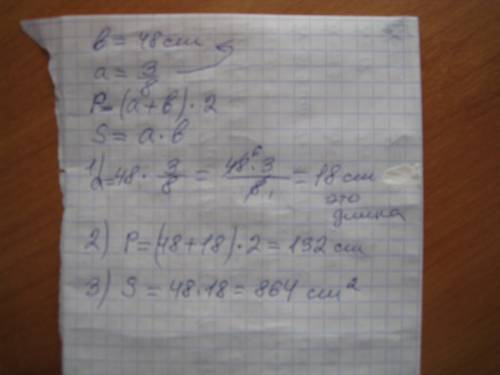 в = 48 cm
a = 3/8
P = (a+в)·2
S = a·в
1) a=48·3/8 = 48⁶·3/8₁ = 18 cm
это
длина
2) P=(48+18)·2=132 cm
3) S = 48·18 = 864 cm²